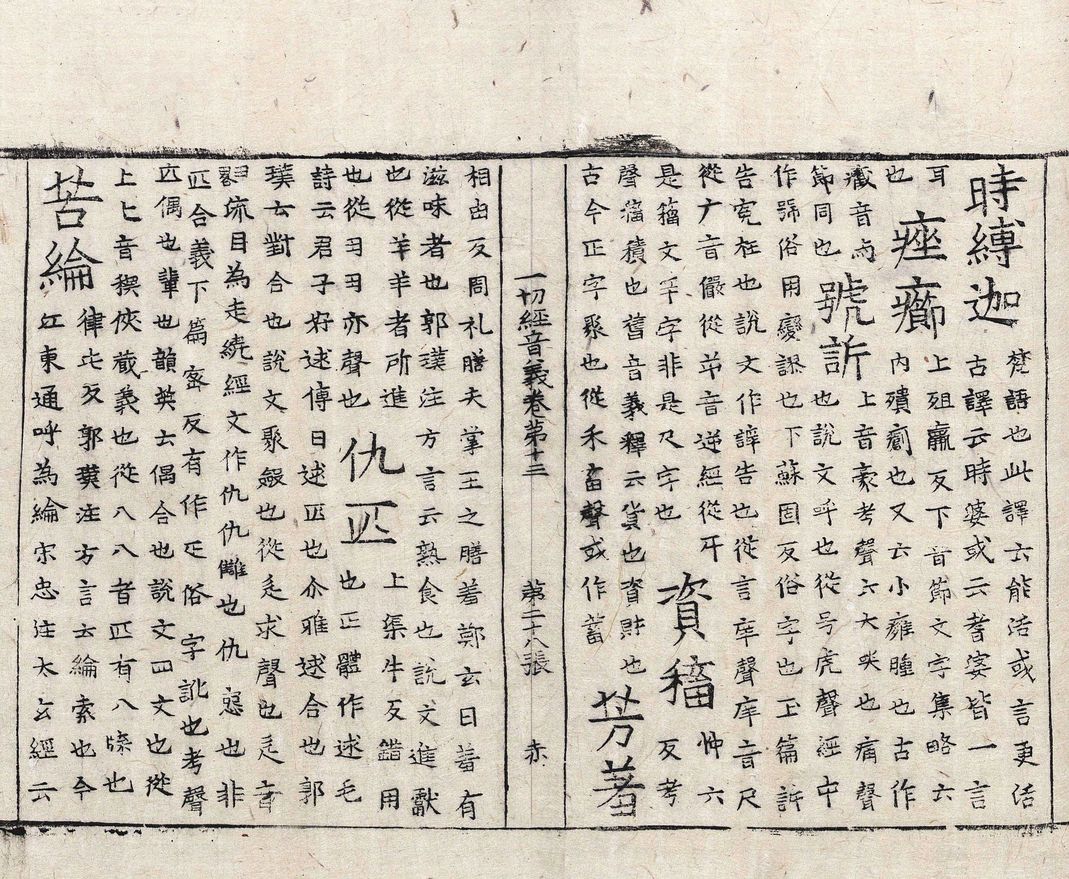 時縛迦 梵語也此譯云能活或言更活
古譯云時婆或云耆婆皆一言
耳
也 痤癤 上殂羸反下音節文字集略云
內殨瘡也又云小癰腫也古作
音
節同也 號訴 上音豪考聲云大哭也痛聲
也說文呼也從号虎聲經中
作號俗用變謬也下蘇固反俗字也玉篇訴
告寃枉也說文作謼告也從言㡿聲㡿音尺
從广音儼從屰音逆經從干
是籀文字非是尺字也 資稸 忡六反考
聲稸積也舊音義釋云貨也資財也 芳羞
古今正字聚也從禾畜聲或作蓄
一切經音義卷第十三 第二十八張 赤
相由反周礼膳夫掌王之膳羞鄭玄曰羞有
滋味者也郭璞注方言云熟食也說文進獻
也從羊羊者所進
也從丑丑亦聲也 仇匹 上渠牛反錯用
也正體作逑毛
詩云君子好逑傳曰逑匹也尒雅逑合也郭
璞云對合也說文聚斂也從辵求聲也辵音
丑流目為走繞經文作仇仇讎也仇惡也非
匹合義下篇蜜反有作疋俗字訛也考聲
匹偶也輩也韻英云偶合也說文四文也從
上匸音徯俠藏義也從八八者匹有八牒也
苦綸 律屯反郭璞注方言云綸索也今
江東通呼為綸宋忠注太玄經云